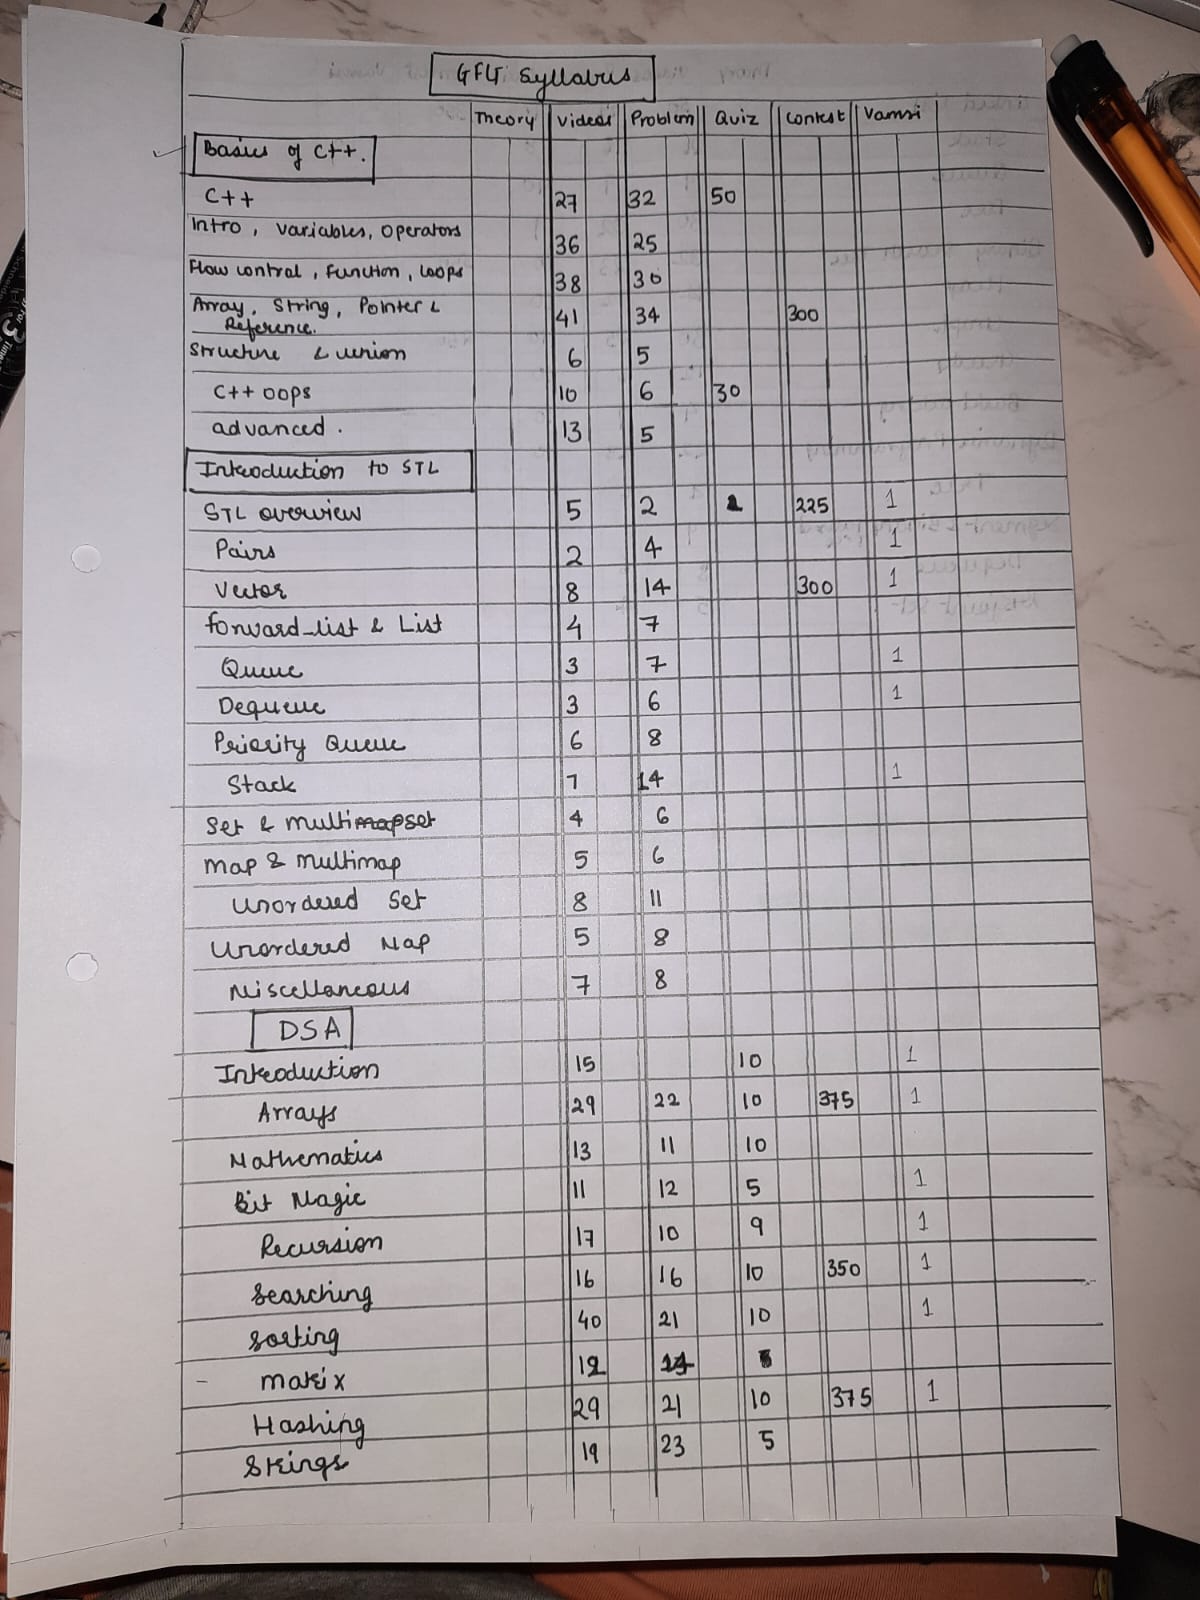 GFG Syllabus
Theory Videos Problem Quiz Contest Vamsi
Basics of C++.
C++ 27 32 50
Intro, Variables, Operators 36 25
Flow control, Function, Loops 38 30
Array, String, Pointer & 41 34 300
Reference.
Structure & union 6 5
C++ oops 10 6 30
advanced. 13 5
Introduction to STL
STL overview 5 2 225 1
Pairs 2 4 1
Vector 8 14 300 1
forward_list & List 4 7
Queue 3 7 1
Dequeue 3 6 1
Priority Queue 6 8
Stack 7 14 1
Set & multiset 4 6
Map & Multimap 5 6
Unordered Set 8 11
Unordered Map 5 8
Miscellaneous 7 8
DSA
Introduction 15 10 1
Arrays 29 22 10 375 1
Mathematics 13 11 10
Bit Magic 11 12 5 1
Recursion 17 10 9 1
Searching 16 16 10 350 1
Sorting 40 21 10 1
- Matrix 12
Hashing 29 21 10 375 1
Strings 19 23 5